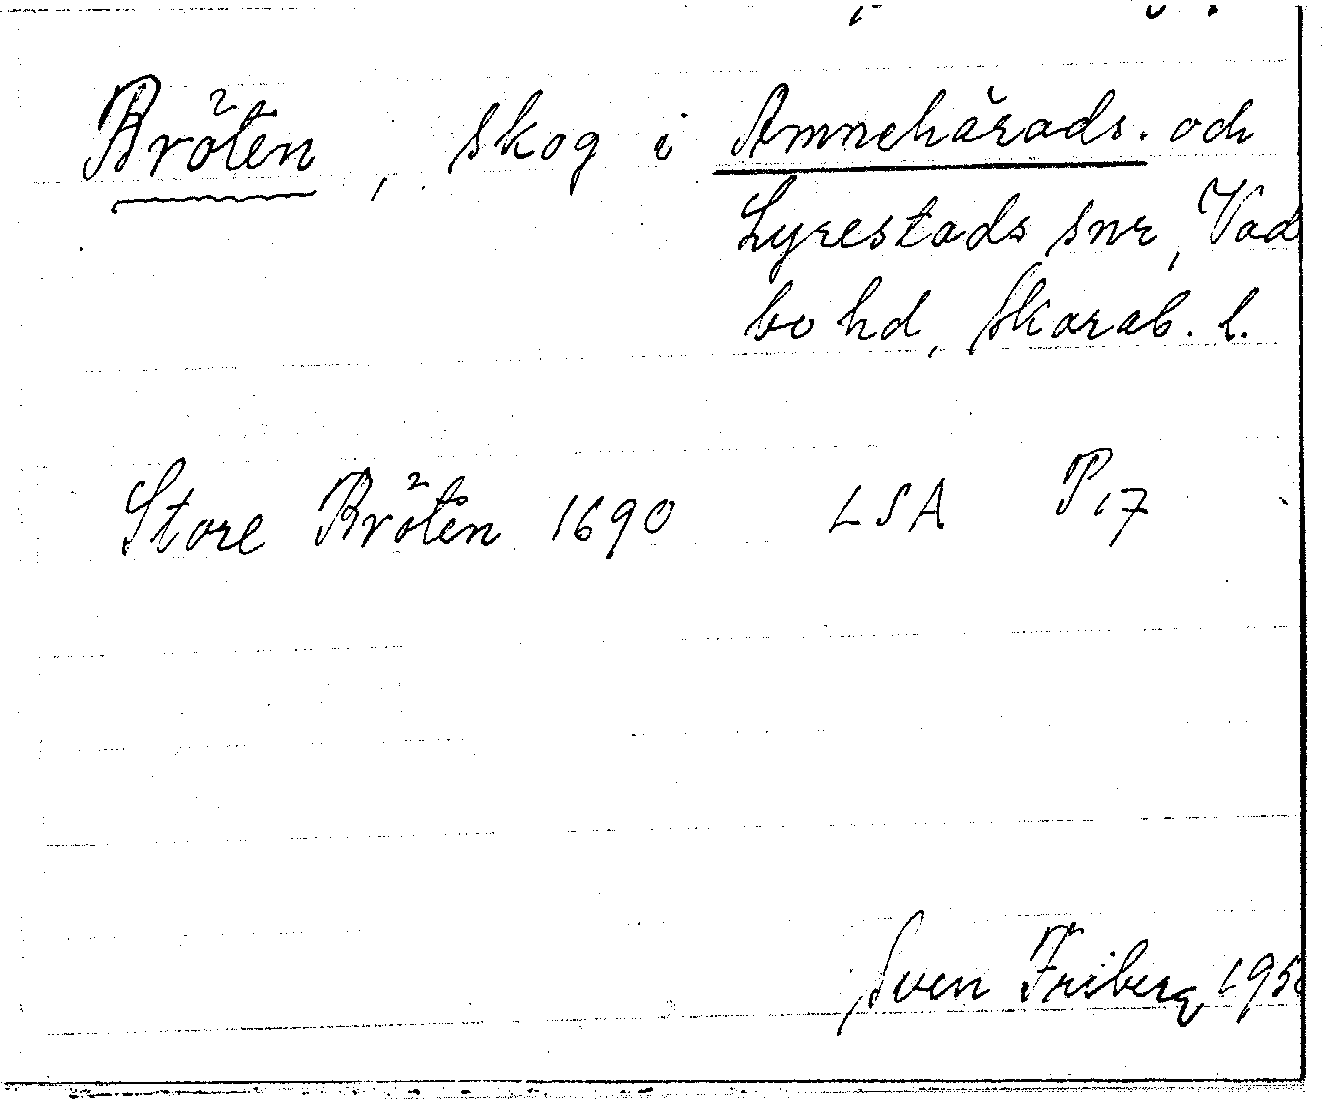 Bröten, skog i Amnehärads. och
Lyrestads snr, Vad
bo hd, Skarab. l.
Store Bröten 1690 LSA P17
Sven Friberg